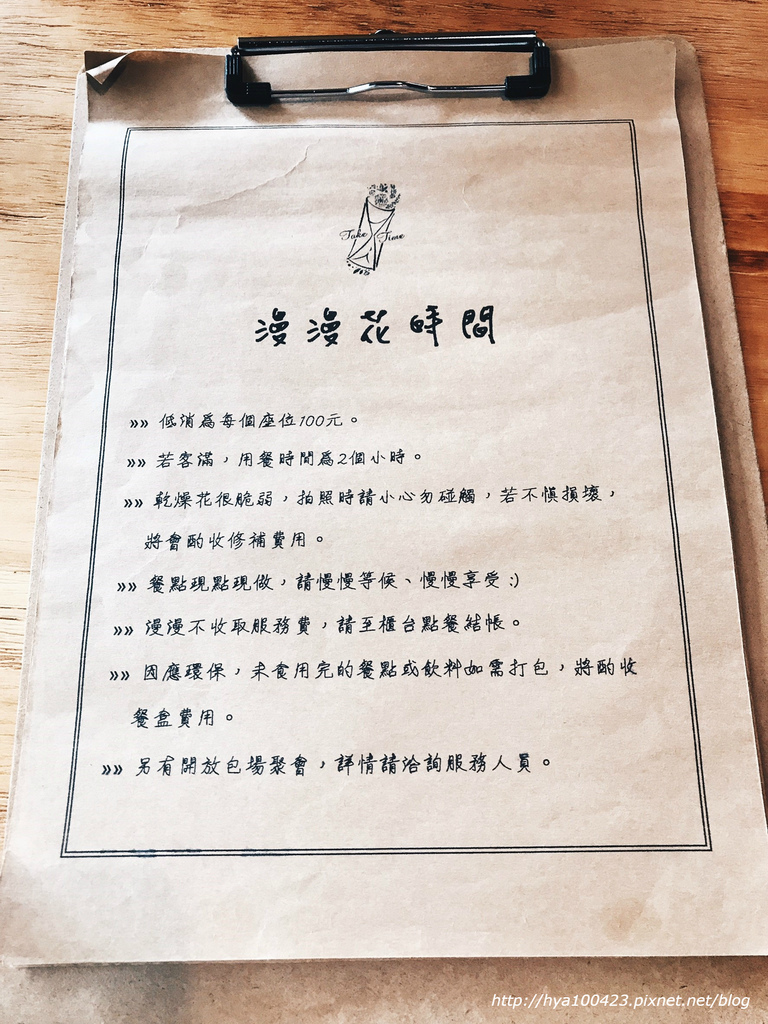 Take Time
漫漫花時間
»» 低消為每個座位100元。
»» 若客滿，用餐時間為2個小時。
»» 乾燥花很脆弱，拍照時請小心勿碰觸，若不慎損壞，
將會酌收修補費用。
»» 餐點現點現做，請慢慢等候、慢慢享受:)
»» 漫漫不收取服務費，請至櫃台點餐結帳。
»» 因應環保，未食用完的餐點或飲料如需打包，將酌收
餐盒費用。
»» 另有開放包場聚會，詳情請洽詢服務人員。
http://hya100423.pixnet.net/blog